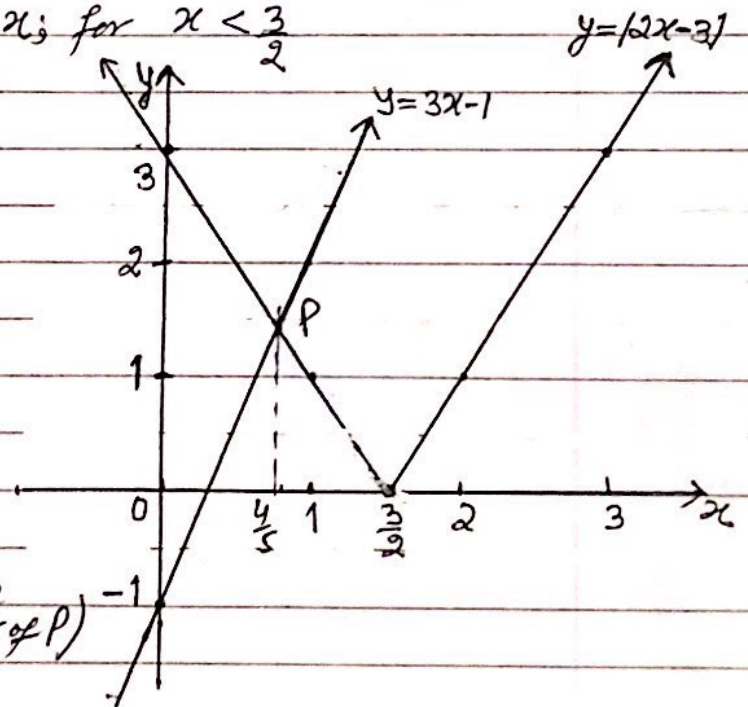 x; for x < 3/2
y=|2x-3|
y
y=3x-1
3
2
P
1
0 4/5 1 3/2 2 3 x
-1
of P)